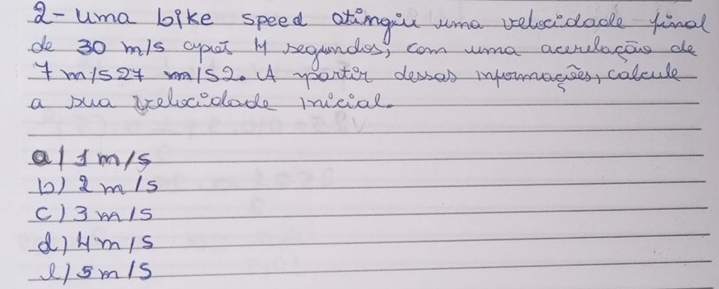 2- uma bike speed atingiu uma velocidade final
de 30 m/s após 4 segundos, com uma acerelação de
7 m/s27 m/s2. A partir dessas informações, calcule
a sua velocidade inicial.
a) 1 m/s
b) 2 m/s
c) 3 m/s
d) 4 m/s
e) 5 m/s